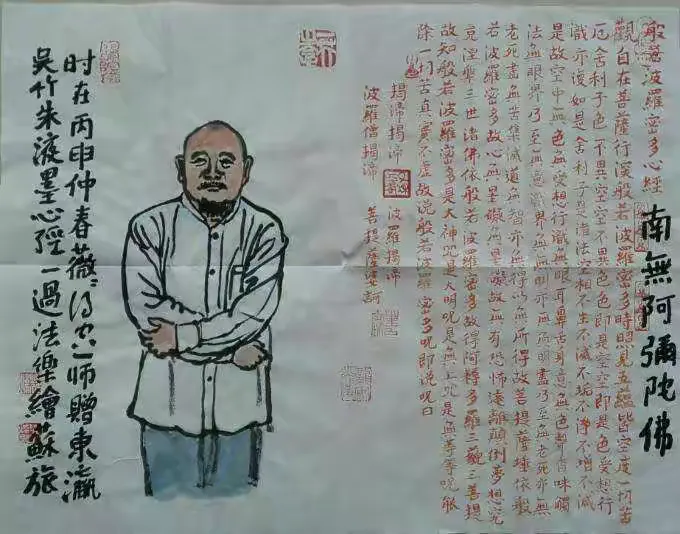 般若波羅密多心經
南無阿彌陀佛
觀自在菩薩行深般若波羅密多時照見五蘊皆空度一切苦
厄舍利子色不異空空不異色色即是空空即是色受想行
識亦復如是舍利子是諸法空相不生不滅不垢不淨不增不減
是故空中無色無受想行識無眼耳鼻舌身意無色聲香味觸
法無眼界乃至無意識界無無明亦無無明盡乃至無老死亦無
老死盡無苦集滅道無智亦無得以無所得故菩提薩埵依般
若波羅密多故心無罣礙無罣礙故無有恐怖遠離顛倒夢想究
竟涅槃三世諸佛依般若波羅密多故得阿耨多羅三藐三菩提
故知般若波羅密多是大神咒是大明咒是無上咒是無等等咒能
除一切苦真實不虛故說般若波羅密多咒即說咒曰
揭諦揭諦 波羅揭諦
波羅僧揭諦 菩提薩婆訶
时在丙申仲春薇師贈東瀛
吳竹朱液墨心經一過法樂繪蘇旅